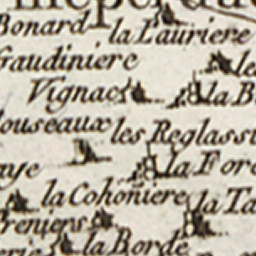 Bonard la Lauriere
Gaudiniere les
Vignac la B
Mouseaux les Reglass
aye la For
la Cohoniere la Ta
Preniers
erie la Borde